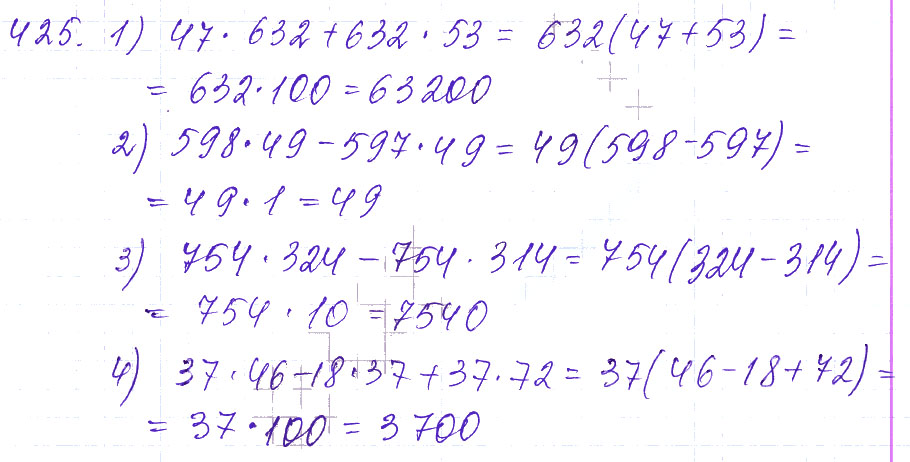 425. 1) 47 · 632 + 632 · 53 = 632(47 + 53) =
= 632 · 100 = 63200
2) 598 · 49 - 597 · 49 = 49(598 - 597) =
= 49 · 1 = 49
3) 754 · 324 - 754 · 314 = 754(324 - 314) =
= 754 · 10 = 7540
4) 37 · 46 - 18 · 37 + 37 · 72 = 37(46 - 18 + 72) =
= 37 · 100 = 3700